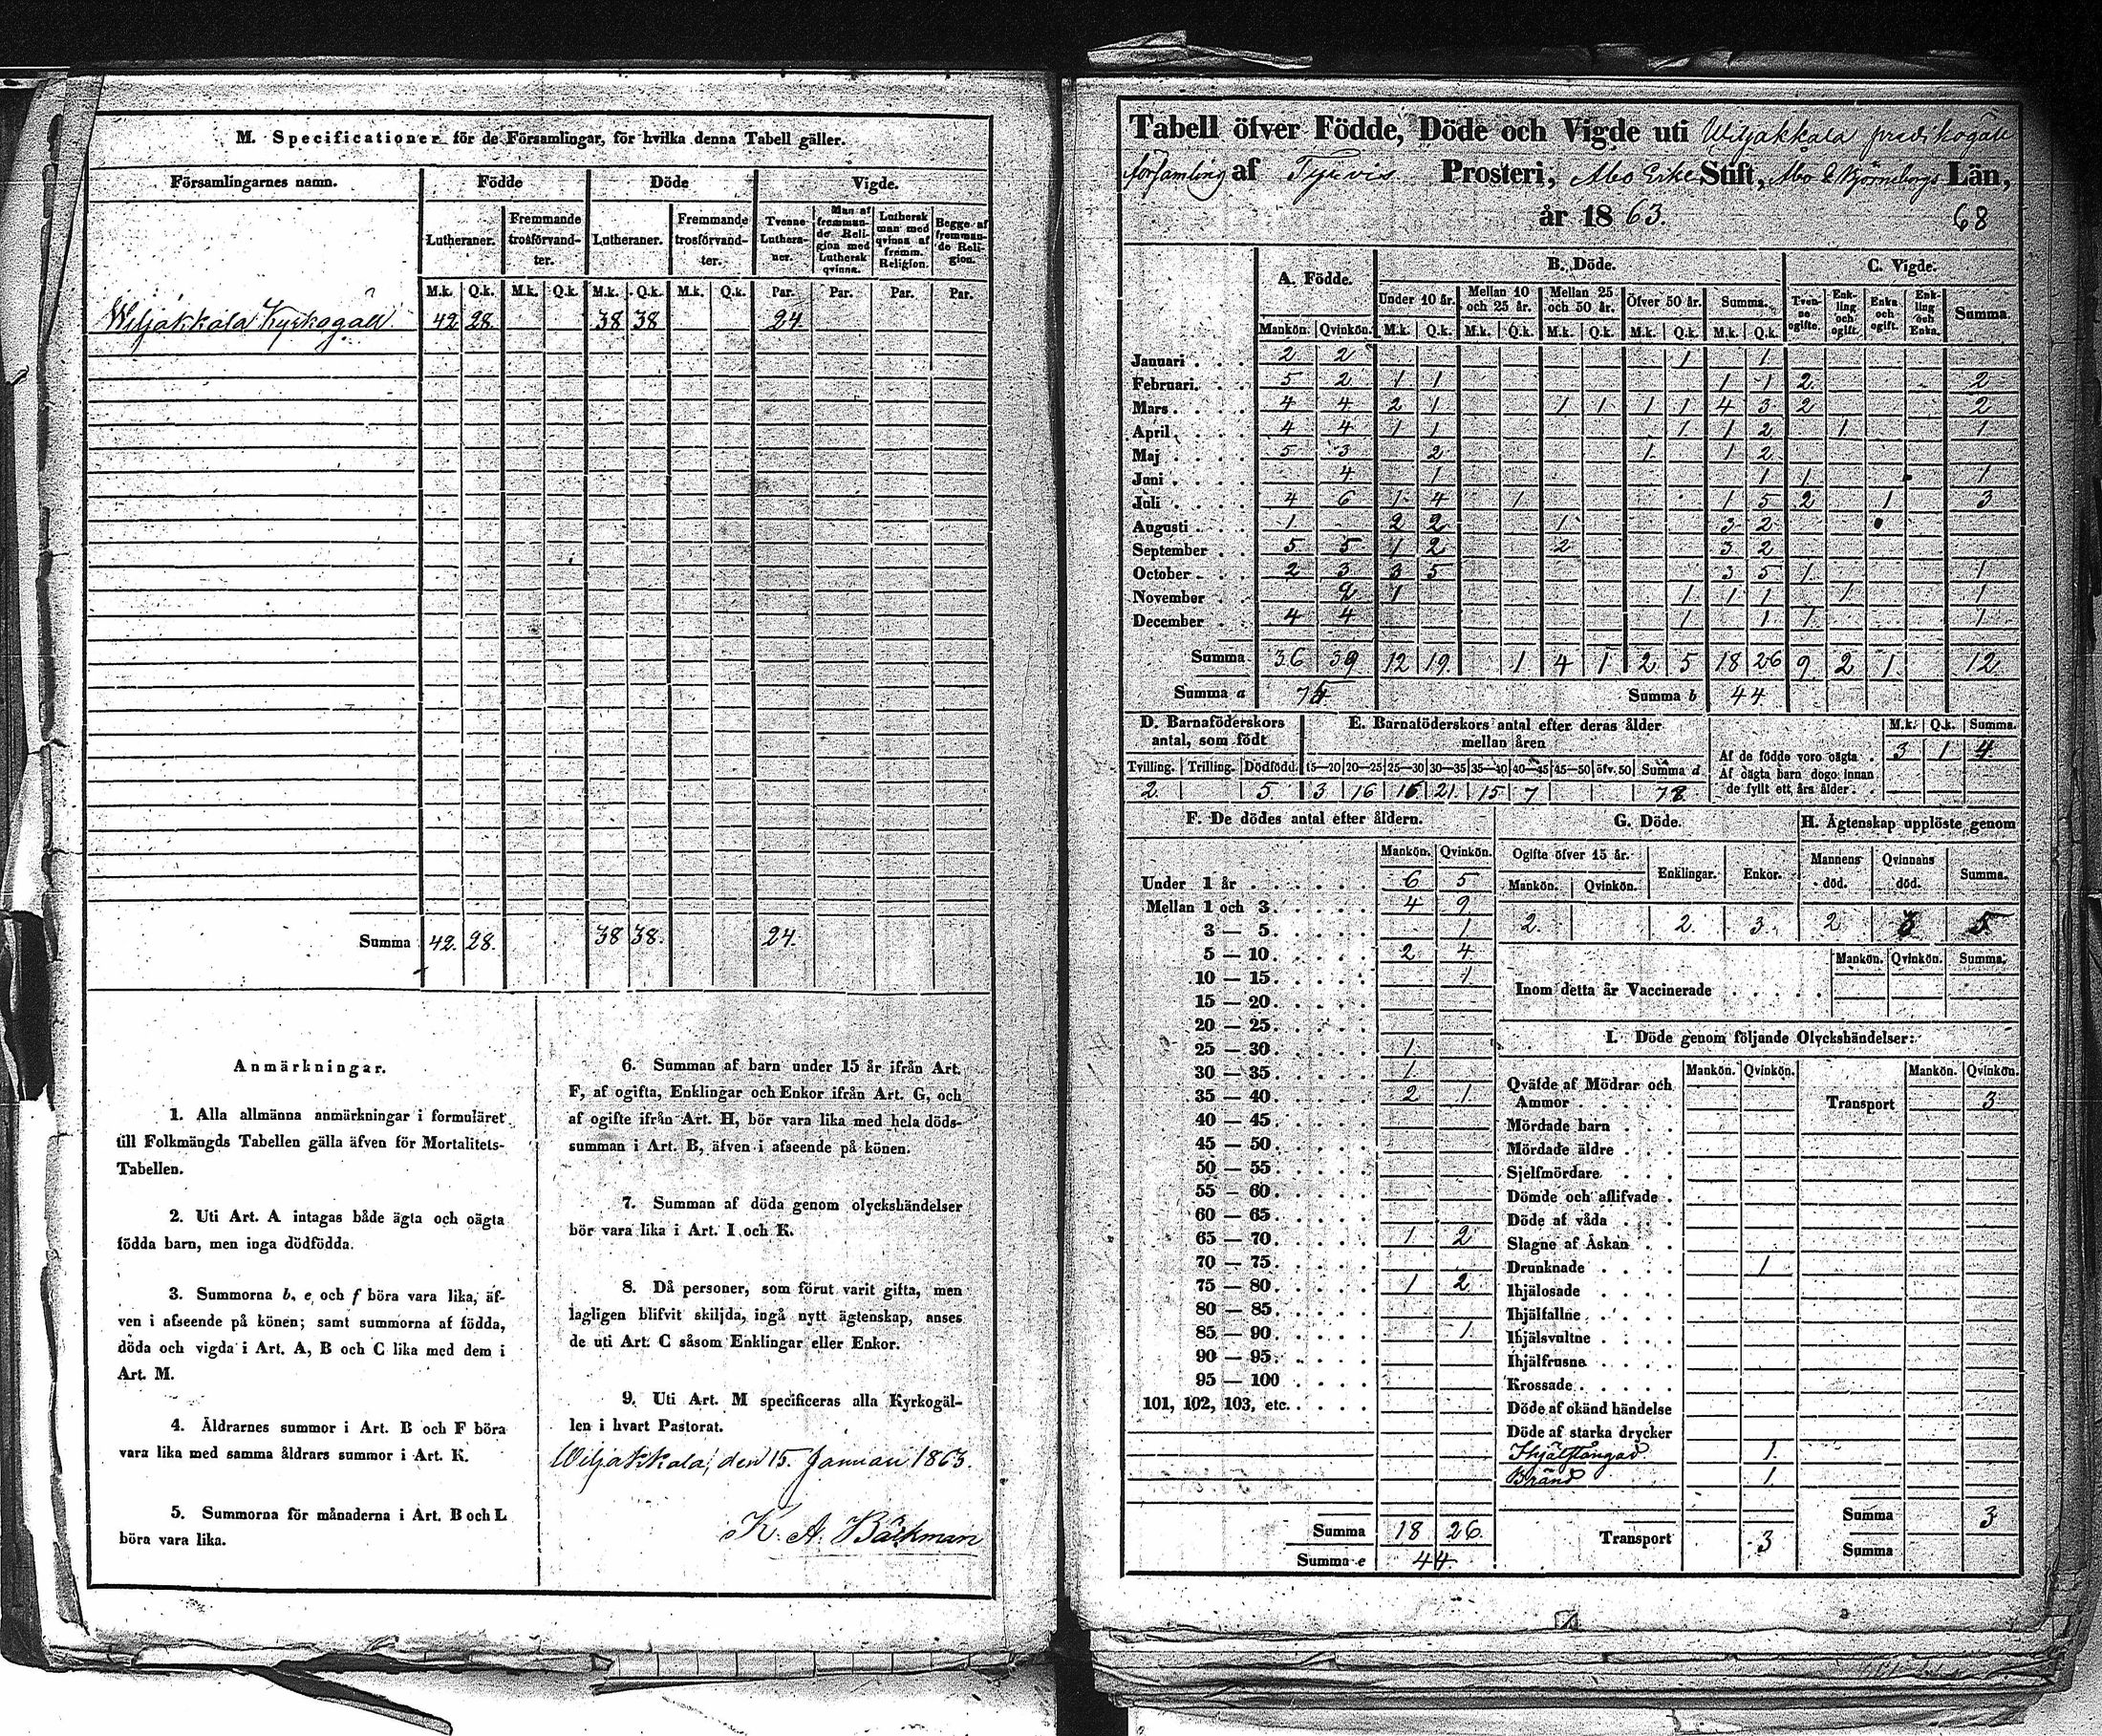 M. Specificationer för de Församlingar, för hvilka denna Tabell gäller.
Församlingarnes namn. Födde Döde Vigde.
Lutheraner. Fremmande trosförvandter. Lutheraner. Fremmande trosförvandter. Tvenne Lutheraner. Man af fremmande Religion med Luthersk qvinna. Luthersk man med qvinna af fremm. Religion. Begge af fremmande Religion.
M.k. Q.k. M.k. Q.k. M.k. Q.k. M.k. Q.k. Par. Par. Par. Par.
Wiljakkala Kyrkogäll 42 28. 38 38 24.
Summa 42. 28. 38 38. 24.
Anmärkningar.
1. Alla allmänna anmärkningar i formuläret
till Folkmängds Tabellen gälla äfven för Mortalitets-
Tabellen.
2. Uti Art. A intagas både ägta och oägta
födda barn, men inga dödfödda.
3. Summorna b, e och f böra vara lika, äf-
ven i afseende på könen; samt summorna af födda,
döda och vigda i Art. A, B och C lika med dem i
Art. M.
4. Åldrarnes summor i Art. B och F böra
vara lika med samma åldrars summor i Art. K.
5. Summorna för månaderna i Art. B och L
böra vara lika.
6. Summan af barn under 15 år ifrån Art.
F, af ogifta, Enklingar och Enkor ifrån Art. G, och
af ogifte ifrån Art. H, bör vara lika med hela döds-
summan i Art. B, äfven i afseende på könen.
7. Summan af döda genom olyckshändelser
bör vara lika i Art. I och K.
8. Då personer, som förut varit gifta, men
lagligen blifvit skiljda, ingå nytt ägtenskap, anses
de uti Art. C såsom Enklingar eller Enkor.
9. Uti Art. M specificeras alla Kyrkogäl-
len i hvart Pastorat.
Wiljakkala, den 15. Januari 1863.
K. A. Bäckman
Tabell öfver Födde, Döde och Vigde uti Wiljakkala predikogälls
församling af Tyrvis Prosteri, Åbo Erke Stift, Åbo & Björneborgs Län,
år 1863. 68
A. Födde. B. Döde. C. Vigde.
Under 10 år. Mellan 10 och 25 år. Mellan 25 och 50 år. Öfver 50 år. Summa. Tvenne ogifte. Enkling och ogift. Enka och ogift. Enkling och Enka. Summa.
Mankön. Qvinkön. M.k. Q.k. M.k. Q.k. M.k. Q.k. M.k. Q.k. M.k. Q.k.
Januari 2 2 1 1
Februari. 5 2 1 1 1 1 2 2
Mars 4 4 2 1 1 1 1 1 4 3 2 2
April 4 4 1 1 1 1 2 1 1
Maj 5 3 2 1 1 2
Juni 4 1 1 1 1
Juli 4 6 1 4 1 1 5 2 1 3
Augusti 1 2 2 1 3 2
September 5 5 1 2 2 3 2
October 2 3 3 5 3 5 1 1
November 2 1 1 1 1 1 1
December 4 4 1 1 1 1
Summa 36 39 12 19 1 4 1 2 5 18 26 9 2 1 12
Summa a 75 Summa b 44
D. Barnaföderskors antal, som födt
E. Barnaföderskors antal efter deras ålder mellan åren
M.k. Q.k. Summa.
Af de födde voro oägta 3 1 4
Af oägta barn dogo innan
de fyllt ett års ålder
Tvilling. Trilling. Dödfödd. 15—20 20—25 25—30 30—35 35—40 40—45 45—50 öfv. 50 Summa d
2 5 3 16 16 21 15 7 78
F. De dödes antal efter åldern.
Mankön. Qvinkön.
Under 1 år 6 5
Mellan 1 och 3 4 9
3 — 5 1
5 — 10 2 4
10 — 15 1
15 — 20
20 — 25
25 — 30 1
30 — 35 1
35 — 40 2 1
40 — 45
45 — 50
50 — 55
55 — 60
60 — 65
65 — 70 1 2
70 — 75
75 — 80 1 2
80 — 85
85 — 90 1
90 — 95
95 — 100
101, 102, 103, etc.
Summa 18 26
Summa e 44
G. Döde.
Ogifte öfver 15 år. Enklingar. Enkor.
Mankön. Qvinkön.
2 2 3
H. Ägtenskap upplöste genom
Mannens död. Qvinnans död. Summa.
2 3 5
Mankön. Qvinkön. Summa.
Inom detta år Vaccinerade
I. Döde genom följande Olyckshändelser:
Mankön. Qvinkön. Mankön. Qvinkön.
Qväfde af Mödrar och
Ammor Transport 3
Mördade barn
Mördade äldre
Sjelfmördare
Dömde och aflifvade
Döde af våda
Slagne af Åskan
Drunknade 1
Ihjälosade
Ihjälfallne
Ihjälsvultne
Ihjälfrusne
Krossade
Döde af okänd händelse
Döde af starka drycker
Ihjälstångad 1
Bränd 1
Transport 3
Summa 3
Summa